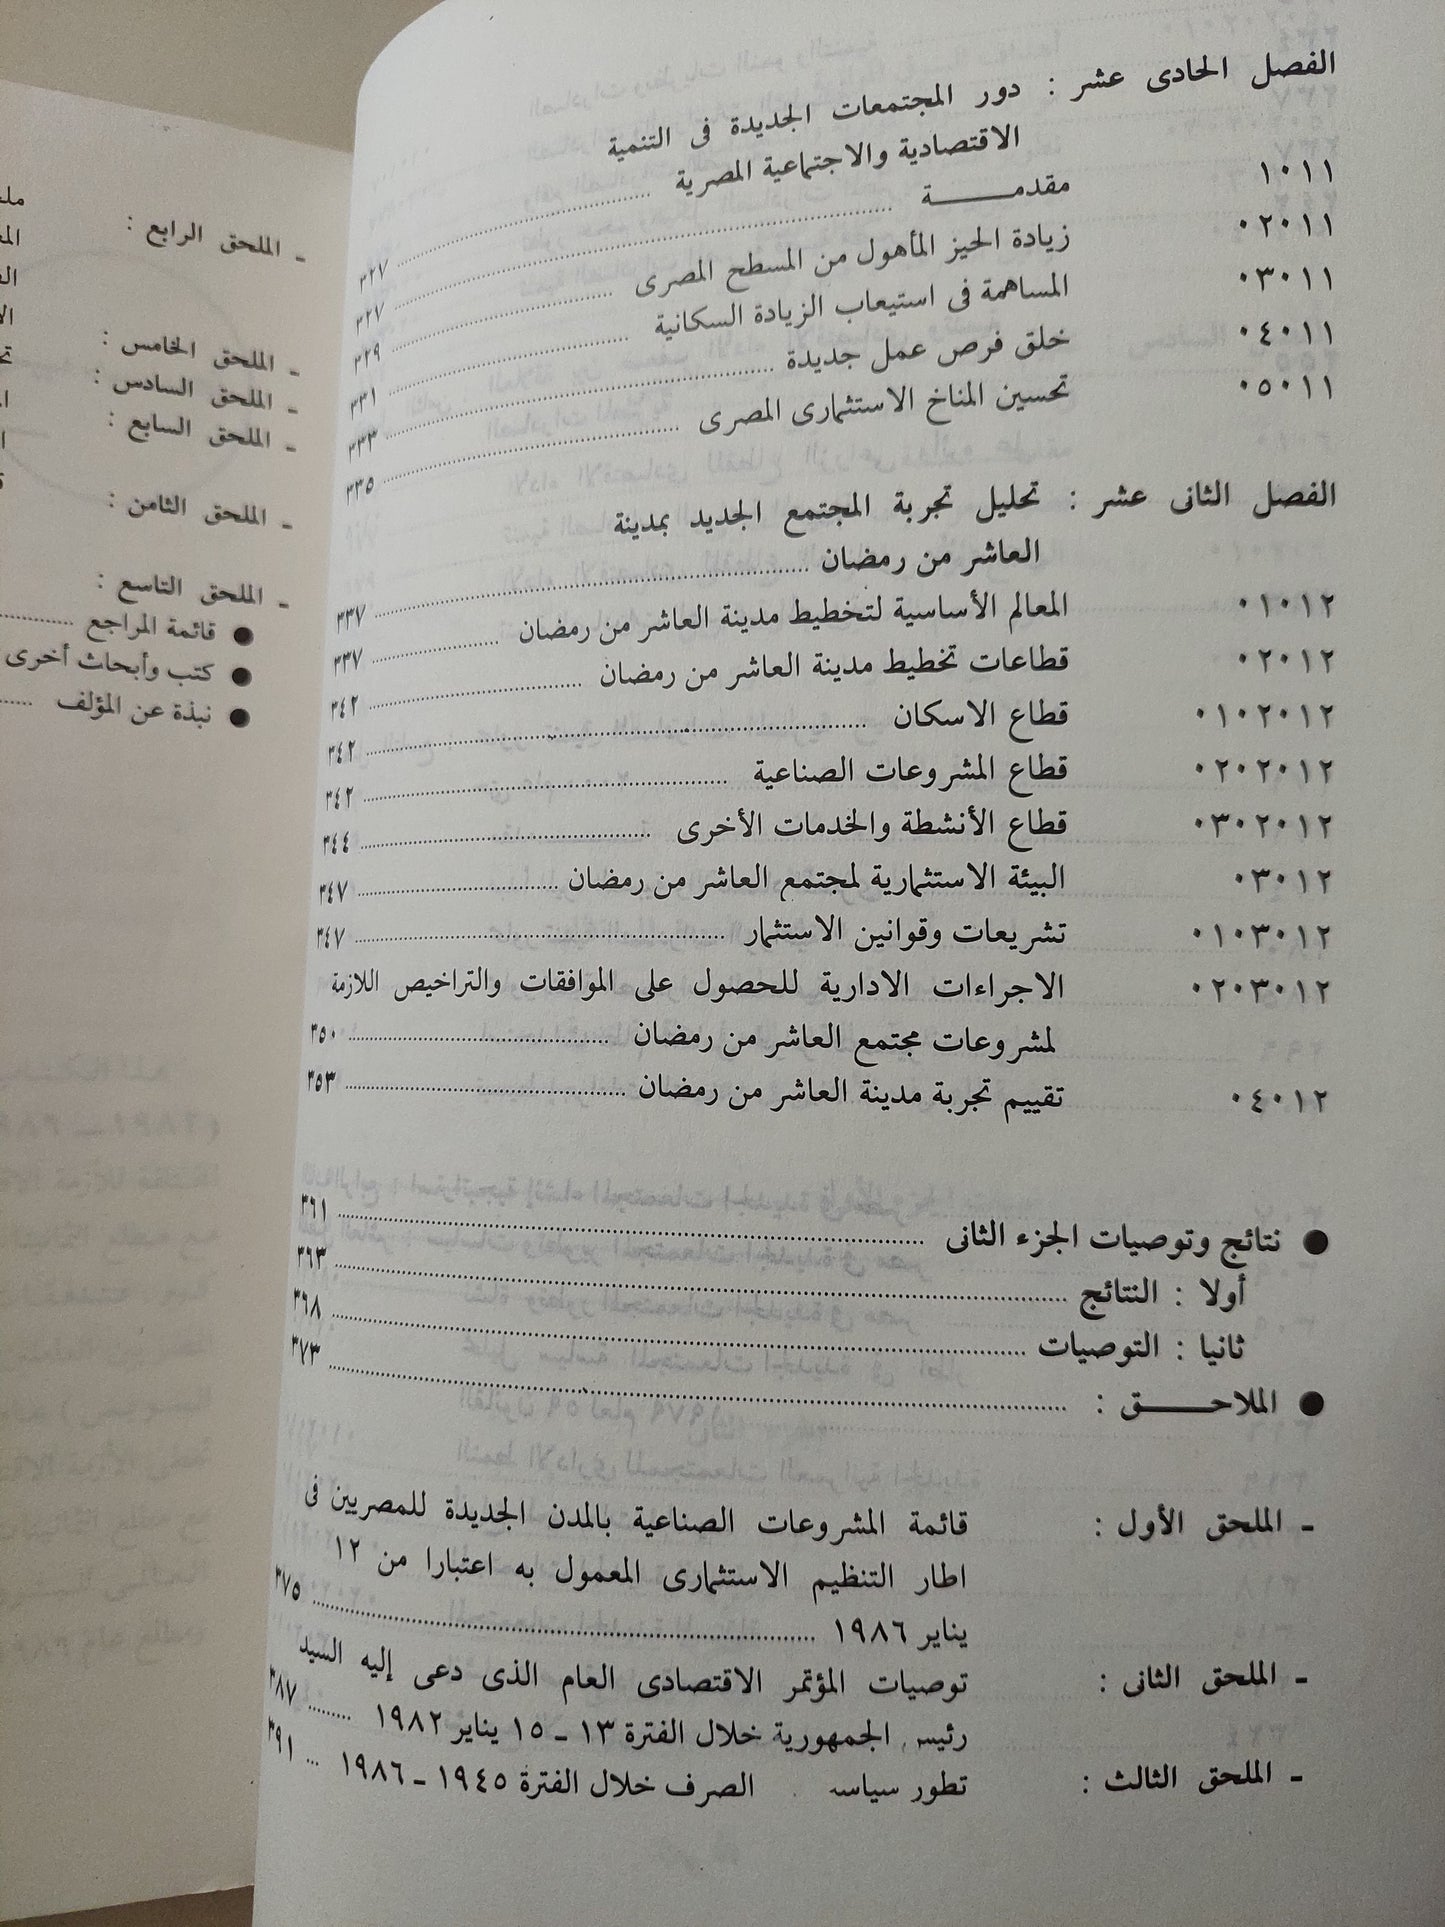 الفصل الحادى عشر : دور المجتمعات الجديدة فى التنمية
الاقتصادية والاجتماعية المصرية ٣٢٧
١٠١١ مقدمـــــة ٣٢٧
٠٢٠١١ زيادة الحيز المأهول من المسطح المصرى ٣٢٩
٠٣٠١١ المساهمة فى استيعاب الزيادة السكانية ٣٣١
٠٤٠١١ خلق فرص عمل جديدة ٣٣٣
٠٥٠١١ تحسين المناخ الاستثمارى المصرى ٣٣٥
الفصل الثانى عشر : تحليل تجربة المجتمع الجديد بمدينة
العاشر من رمضان ٣٣٧
٠١٠١٢ المعالم الأساسية لتخطيط مدينة العاشر من رمضان ٣٣٧
٠٢٠١٢ قطاعات تخطيط مدينة العاشر من رمضان ٣٤٢
٠١٠٢٠١٢ قطاع الاسكان ٣٤٢
٠٢٠٢٠١٢ قطاع المشروعات الصناعية ٣٤٢
٠٣٠٢٠١٢ قطاع الأنشطة والخدمات الأخرى ٣٤٤
٠٣٠١٢ البيئة الاستثمارية لمجتمع العاشر من رمضان ٣٤٧
٠١٠٣٠١٢ تشريعات وقوانين الاستثمار ٣٤٧
٠٢٠٣٠١٢ الاجراءات الادارية للحصول على الموافقات والتراخيص اللازمة
لمشروعات مجتمع العاشر من رمضان ٣٥٠
٠٤٠١٢ تقييم تجربة مدينة العاشر من رمضان ٣٥٣
● نتائج وتوصيات الجزء الثانى ٣٦١
أولا : النتائج ٣٦٣
ثانيا : التوصيات ٣٦٨
● الملاحـــــق : ٣٧٣
ـ الملحق الأول : قائمة المشروعات الصناعية بالمدن الجديدة للمصريين فى
اطار التنظيم الاستثمارى المعمول به اعتبارا من ١٢
يناير ١٩٨٦ ٣٧٥
ـ الملحق الثانى : توصيات المؤتمر الاقتصادى العام الذى دعى إليه السيد
رئيس الجمهورية خلال الفترة ١٣ ـ ١٥ يناير ١٩٨٢ ٣٨٧
ـ الملحق الثالث : تطور سياسه الصرف خلال الفترة ١٩٤٥ ـ ١٩٨٦ ٣٩١
ـ الملحق الرابع :
ـ الملحق الخامس :
ـ الملحق السادس :
ـ الملحق السابع :
ـ الملحق الثامن :
ـ الملحق التاسع :
● قائمة المراجع
● كتب وأبحاث أخرى
● نبذة عن المؤلف